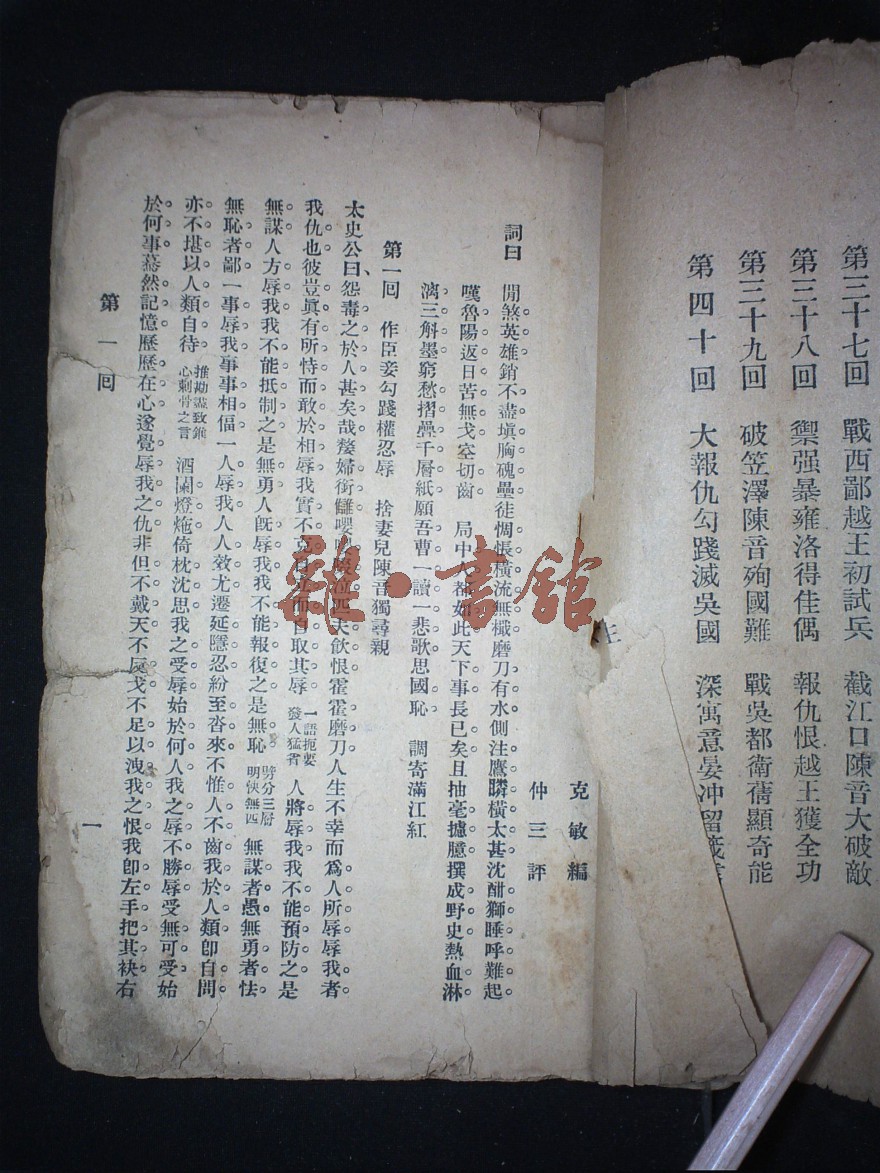 第三十七回　戰西鄙越王初試兵　截江口陳音大破敵
第三十八回　禦强暴雍洛得佳偶　報仇恨越王獲全功
第三十九回　破笠澤陳音殉國難　戰吳都衛蒨顯奇能
第四十回　大報仇勾踐滅吳國　深寓意晏冲留箋
克敏編
仲三評
詞曰　閒煞英雄銷不盡塡胸磈壘徒惆悵橫流無檝磨刀有水側注鷹瞵橫太甚沈酣獅睡呼難起
嘆魯陽返日苦無戈空切齒　局中人都如此天下事長已矣且抽毫攄臆撰成野史熱血淋
漓三斛墨窮愁摺疊千層紙願吾曹一讀一悲歌思國恥　調寄滿江紅
第一回　作臣妾勾踐權忍辱　捨妻兒陳音獨尋親
太史公曰怨毒之於人甚矣哉嫠婦銜讎嚶嚶泣匹夫飲恨霍霍磨刀人生不幸而爲人所辱辱我者
我仇也彼豈眞有所恃而敢於相辱我實不克自立而自取其辱　一語扼要發人猛省　人將辱我我不能預防之是
無謀人方辱我我不能抵制之是無勇人旣辱我我不能報復之是無恥　劈分三層明快無匹　無謀者愚無勇者怯
無恥者鄙一事辱我事事相偪一人辱我人人效尤遷延隱忍紛至沓來不惟人不齒我於人類卽自問
亦不堪以人類自待　推勘盡致鉥心劌骨之言　酒闌燈灺倚枕沈思我之受辱始於何人我之辱不勝辱受無可受始
於何事驀然記憶歷歷在心遂覺辱我之仇非但不戴天不反戈不足以洩我之恨我卽左手把其袂右
第一回
一
雜·書館